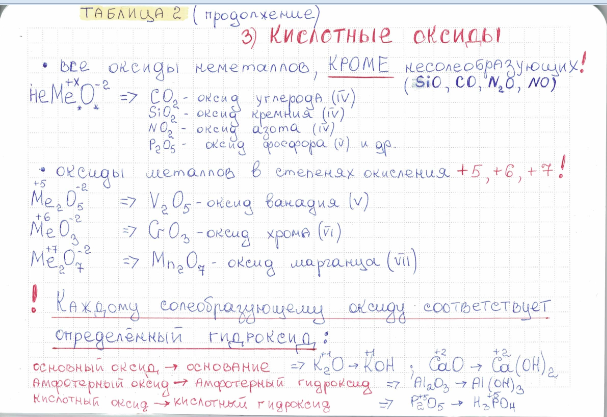 ТАБЛИЦА 2 (продолжение)
3) Кислотные оксиды
• все оксиды неметаллов, КРОМЕ несолеобразующих!
(SiO, CO, N₂O, NO)
неMe⁺ˣO⁻² => CO₂ - оксид углерода (IV)
SiO₂ - оксид кремния (IV)
NO₂ - оксид азота (IV)
P₂O₅ - оксид фосфора (V) и др.
• оксиды металлов в степенях окисления +5, +6, +7!
Me₂⁺⁵O₅⁻² => V₂O₅ - оксид ванадия (V)
Me⁺⁶O₃⁻² => CrO₃ - оксид хрома (VI)
Me₂⁺⁷O₇⁻² => Mn₂O₇ - оксид марганца (VII)
! Каждому солеобразующему оксиду соответствует
определённый гидроксид:
основный оксид → основание => K₂⁺¹O → K⁺¹OH ; Ca⁺²O → Ca⁺²(OH)₂
Амфотерный оксид → Амфотерный гидроксид => Al₂⁺³O₃ → Al⁺³(OH)₃
Кислотный оксид → кислотный гидроксид => P₂⁺⁵O₅ → H₃P⁺⁵O₄